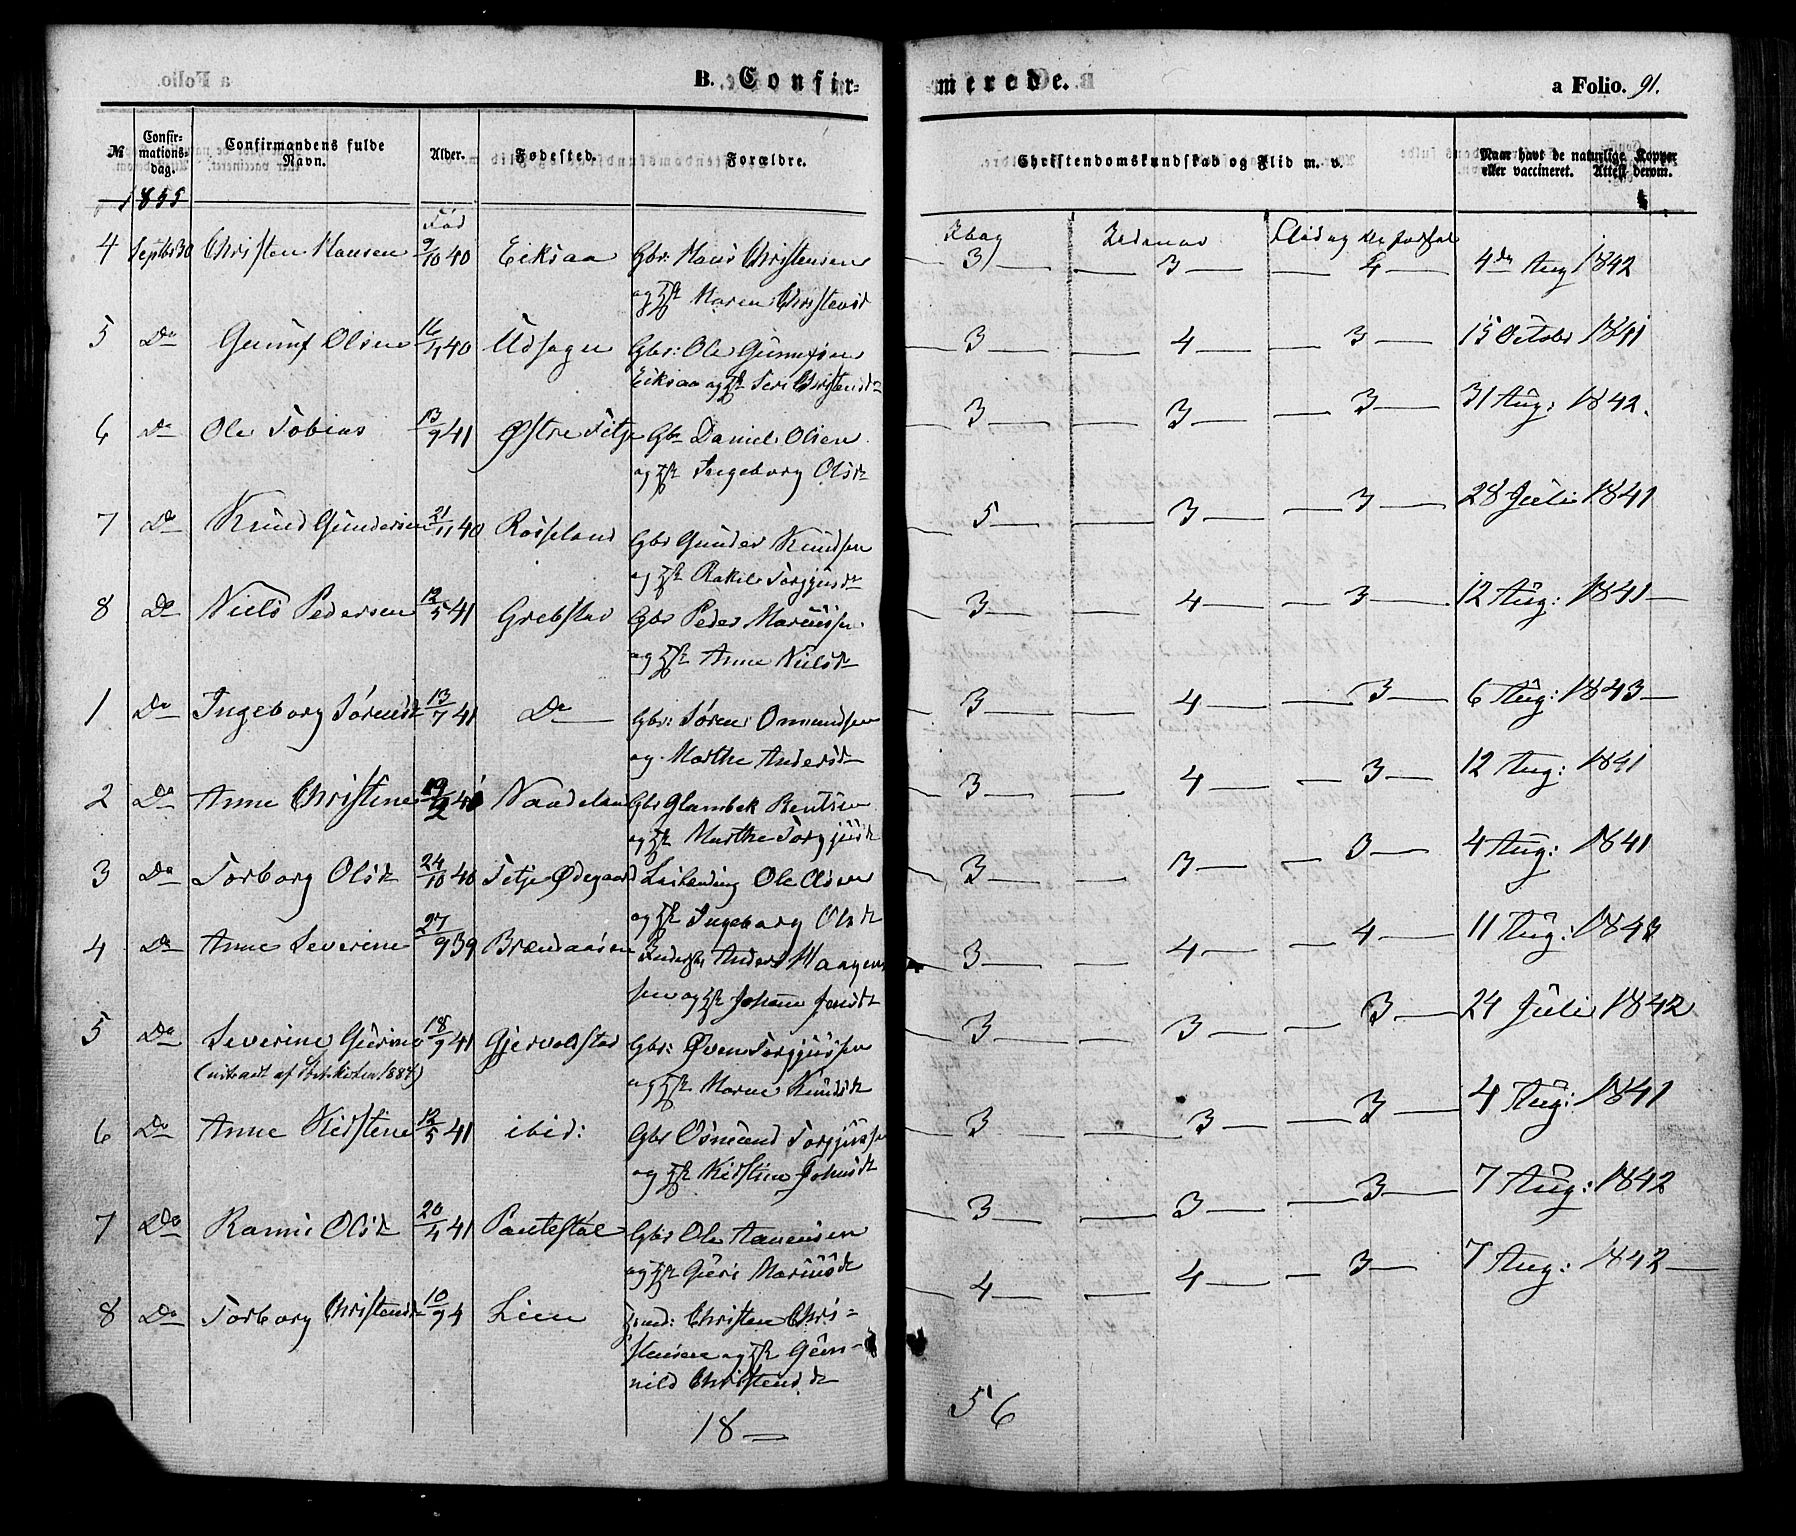 B. Confir-
merede.
a Folio. 91.
№ Confir-mations-dag. Confirmandens fulde Navn. Alder. Fødested. Forældre. Christendomskundskab og Flid m. v. Naar havt de naturlige Kopper eller vaccineret. Attest derom.
1855
Fød
4 Septbr 30 Christen Hansen 9/10 40 Eiksaa Gbr: Hans Christensen 3 3 4 4de Aug 1842
og Hst Maren Christensd
5 Do Gunuf Olsen 16/4 40 Gbr: Ole Gunufsen 3 4 3 15 Octobr 1841
Eiksaa og Hst Christensdr
6 Do Ole Tobias 13/9 41 Østre Titje Gbr Daniel Olsen 3 3 3 31 Aug: 1842.
og Hst Ingeborg Olsdr
7 Do Knud Gundersen 21/11 40 Rosseland Gbr Gunder Knudsen 5 3 3 28 Juli 1841
og Hst Rakel Torgjusdr
8 Do Niels Pedersen 12/5 41 Grebstad Gbr Peder Marcussen 3 4 3 12 Aug: 1841
og Hst Anne Nielsdr
1 Do Ingeborg Sørensdr 13/7 41 Do Gbr: Søren Omundsen 3 4 3 6 Aug: 1843
og Marthe Andersdr
2 Do Anne Christine 19/2 41 Naadeland Gbr Glambek Bentsen 3 4 3 12 Aug: 1841
og Hst Marthe Torgjusdr
3 Do Torborg Olsdr 24/10 40 Titje Ødegaard Ole Olsen 3 3 3 4 Aug: 1841
og Hst Ingeborg Olsdr
4 Do Anne Severine 27/9 39 Brændaasen Anders Haagen- 3 4 4 11 Aug:
sen og Hst Johanne Jensdr
5 Do Severine Gurine 18/9 41 Gjervoldstad Gbr: Øven Torgjussen 3 3 3 24 Juli 1842
og Hst Maren Knudsdr
6 Do Anne Kirstine 12/5 41 ibid: Gbr Osmund Torgjussen 3 3 3 4 Aug: 1841
og Hst Kirstine Johnsdr
7 Do Olsdr 20/4 41 Gbr Ole Aanensen 3 3 3 7 Aug: 1842
og Hst Guri Marcusdr
8 Do Torborg Christensdr 10/9 4 Lien Christen Chri- 4 4 3 7 Aug: 1842
stensen og Hst Gun-
nild Christensdr
18
56